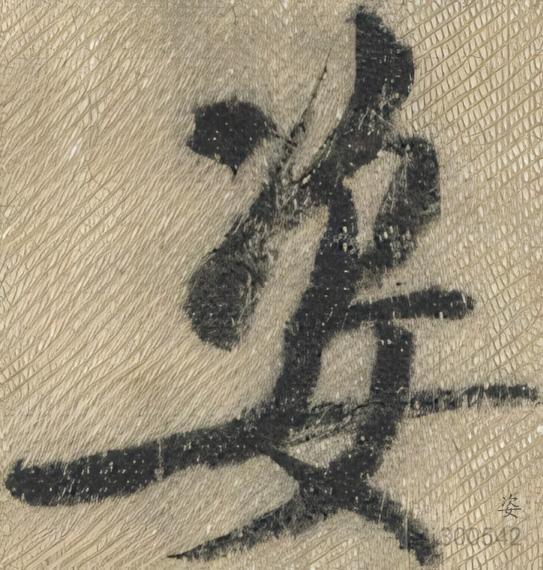 姿
姿
300642